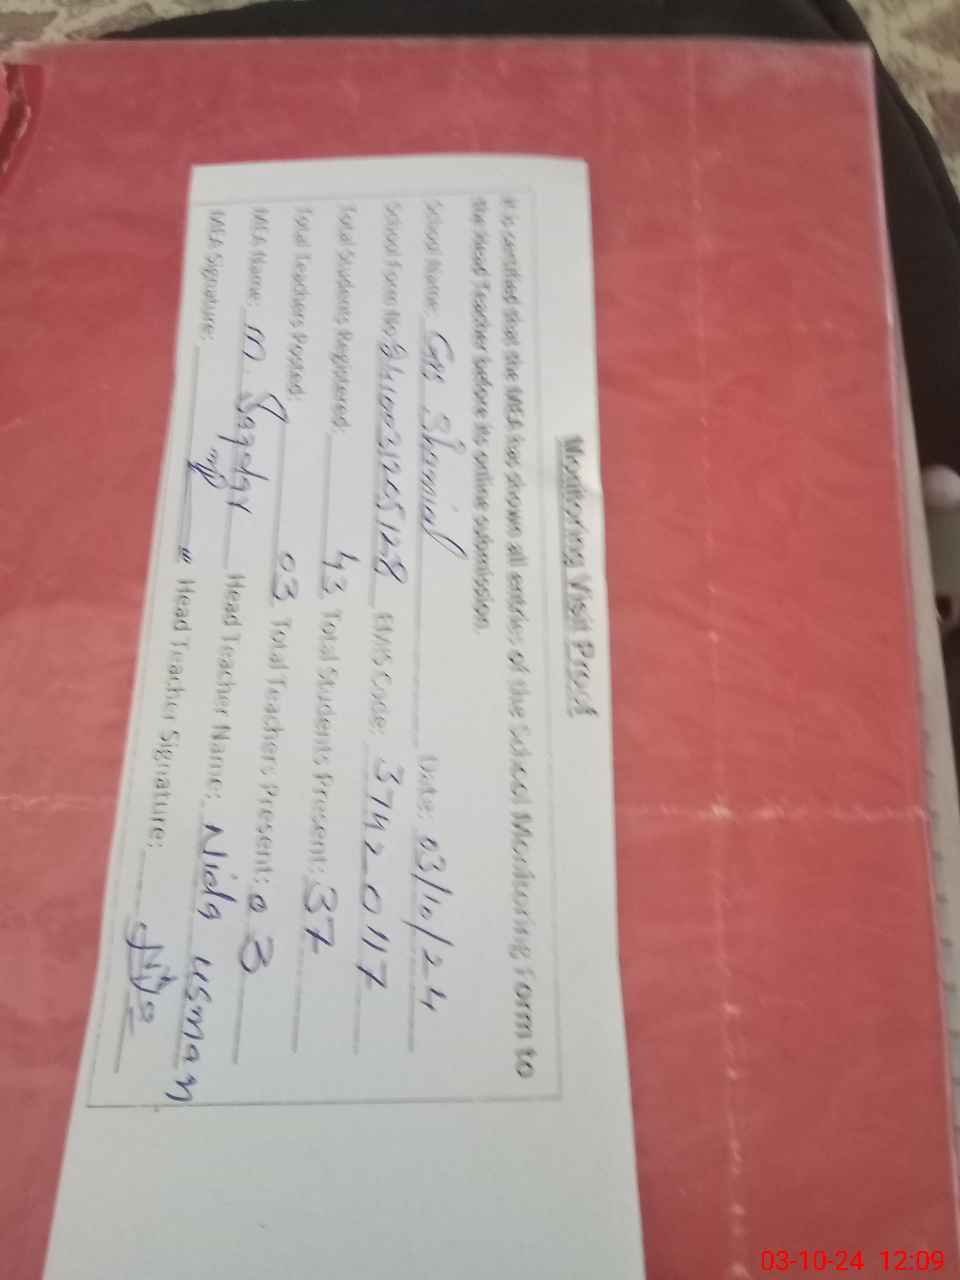 Monitoring Visit Proof
It is certified that the MEA has shown all entries of the School Monitoring Form to
the Head Teacher before its online submission.
School Name: Shamial Date: 03/10/24
School Form No: EMIS Code: 37420117
Total Students Registered: 43 Total Students Present: 37
Total Teachers Posted: 03 Total Teachers Present: 03
MEA Name: M. Head Teacher Name: Nida usman
MEA Signature: Head Teacher Signature: Nida
03-10-24 12:09